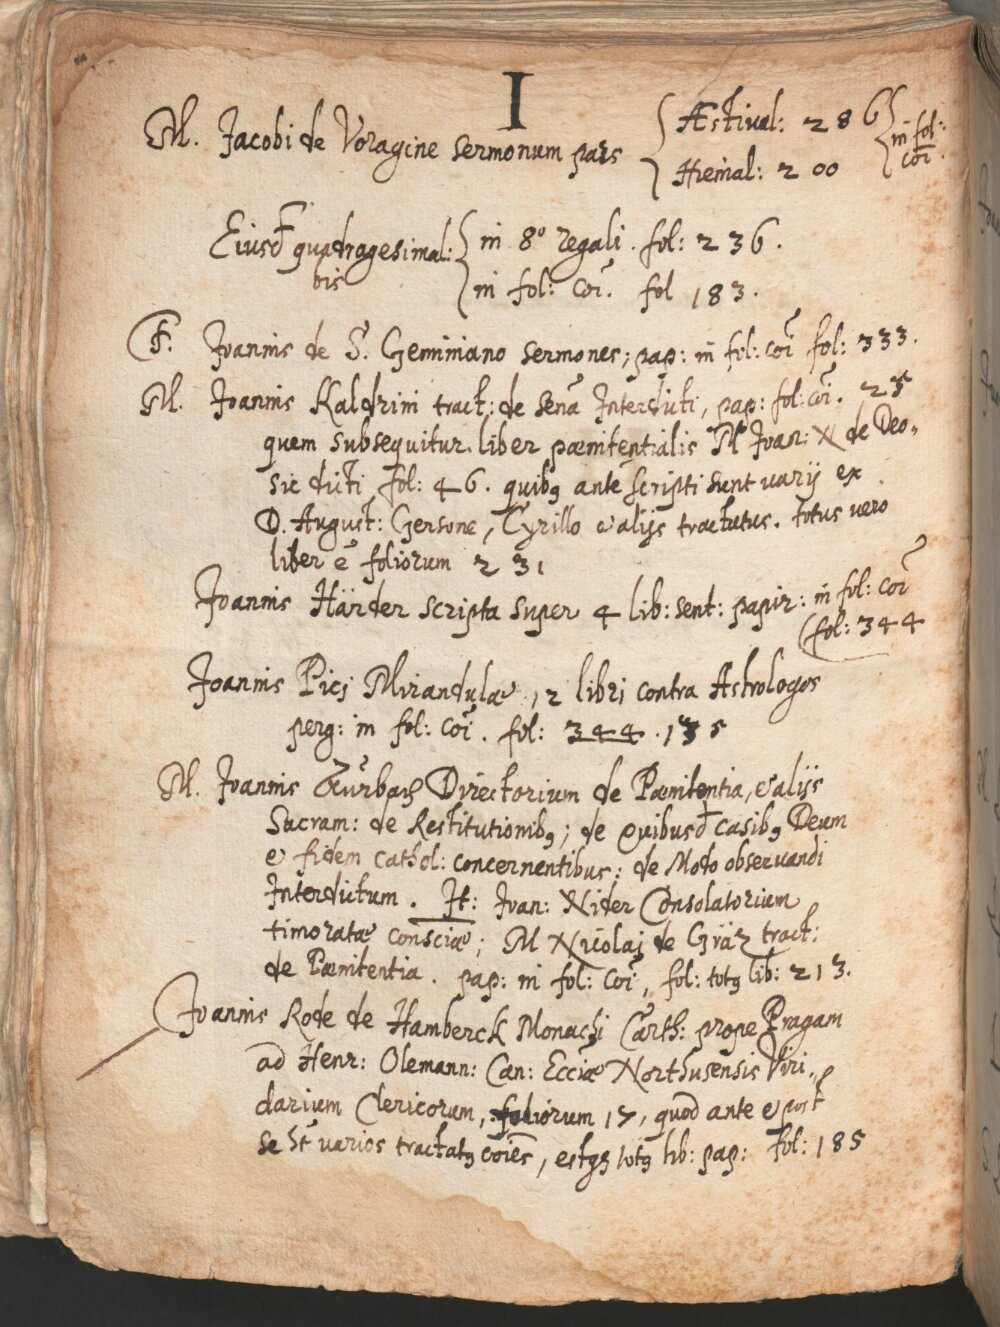 I
M. Jacobi de Voragine sermonum pars { Æstiual: 286 } in fol: coi.
Hiemal: 200
Eiusd quadragesimal: { in 8° regali. fol: 236.
bis in fol: coi. fol 183.
F. Joannis de S. Geminiano sermones; pap: in fol: coi fol: 333.
M. Joannis Kaldrini tract: de Interdicti, pap: fol: coi. 25
quem subsequitur liber pænitentialis M Joan: de Deo,
sic dicti fol: 46. quibꝫ ante scripti sunt varij ex
D. August: Gersone, Cyrillo & alijs tractatus. totus vero
liber ē foliorum 231
Joannis Härder scripta super 4 lib: sent: papir: in fol: coi
(fol: 344
Joannis Picj Mirandulæ 12 libri contra Astrologos
perg: in fol: coi. fol: 344. 135
M. Joannis Directorium de Pænitentia, & alijs
Sacram: de Restitutionibꝫ; de quibusd casibꝫ Deum
& fidem cathol: concernentibus: de Modo observandi
Interdictum. It: Joan: Nider Consolatorium
timoratæ consciæ; M Nicolaj de Gräz tract:
de Pænitentia. pap: in fol: coi, fol: totꝫ lib: 213.
Joannis Rode de Hamberck Monachi Carth: prope Pragam
ad Henr: Olemann: Can: Ecciæ Northusensis Viri,,
darium Clericorum, foliorum 17, quod ante & post
se ht varios tractatꝫ coiēs, estqꝫ totꝫ lib: pap: fol: 185